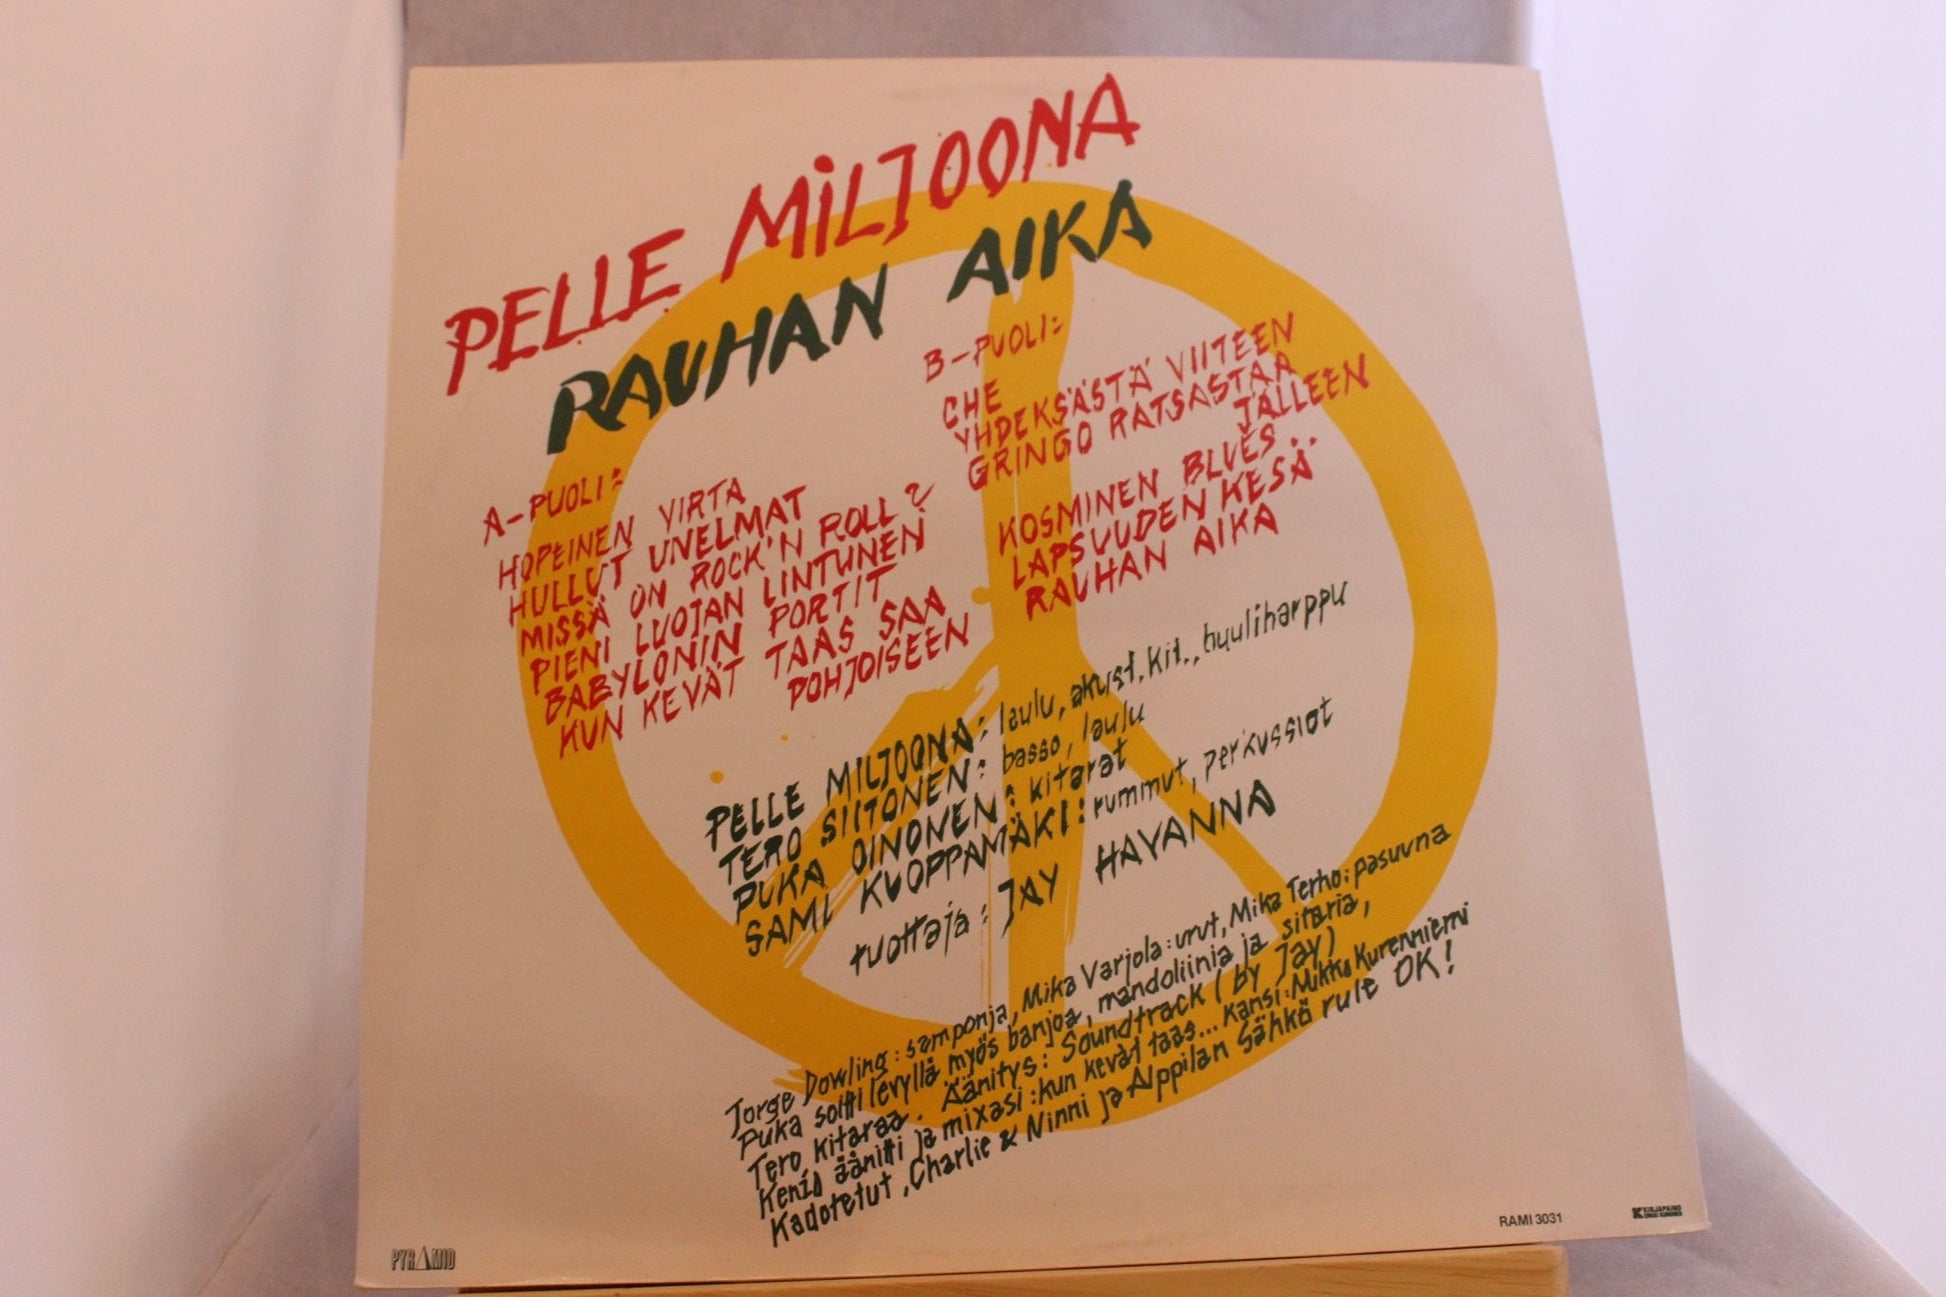 PELLE MILJOONA
RAUHAN AIKA
A-PUOLI:
HOPEINEN VIRTA
HULLUT UNELMAT
MISSÄ ON ROCK'N ROLL?
PIENI LUOJAN LINTUNEN
BABYLONIN PORTIT
KUN KEVÄT TAAS SAA
POHJOISEEN
B-PUOLI:
CHE
YHDEKSÄSTÄ VIITEEN
GRINGO RATSASTAA
JÄLLEEN
KOSMINEN BLUES
LAPSUUDEN KESÄ
RAUHAN AIKA
PELLE MILJOONA: laulu, akust.kit., huuliharppu
TERO SIITONEN: basso, laulu
PUKA OINONEN: kitarat
SAMI KUOPPAMÄKI: rummut, perkussiot
tuottaja: JAY HAVANNA
Jorge Dowling: samponja, Mika Varjola: urut, Mika Terho: pasuuna
Puka soitti levyllä myös banjoa, mandoliinia ja sitaria,
Tero kitaraa. Äänitys: Soundtrack (by Jay)
Kenio äänitti ja mixasi: kun kevät taas... Kansi: Mikko Kurenniemi
Kadotetut, Charlie & Ninni ja Alppilan Sähkö rule OK!
PYRAMID
RAMI 3031
KIRJAPAINO